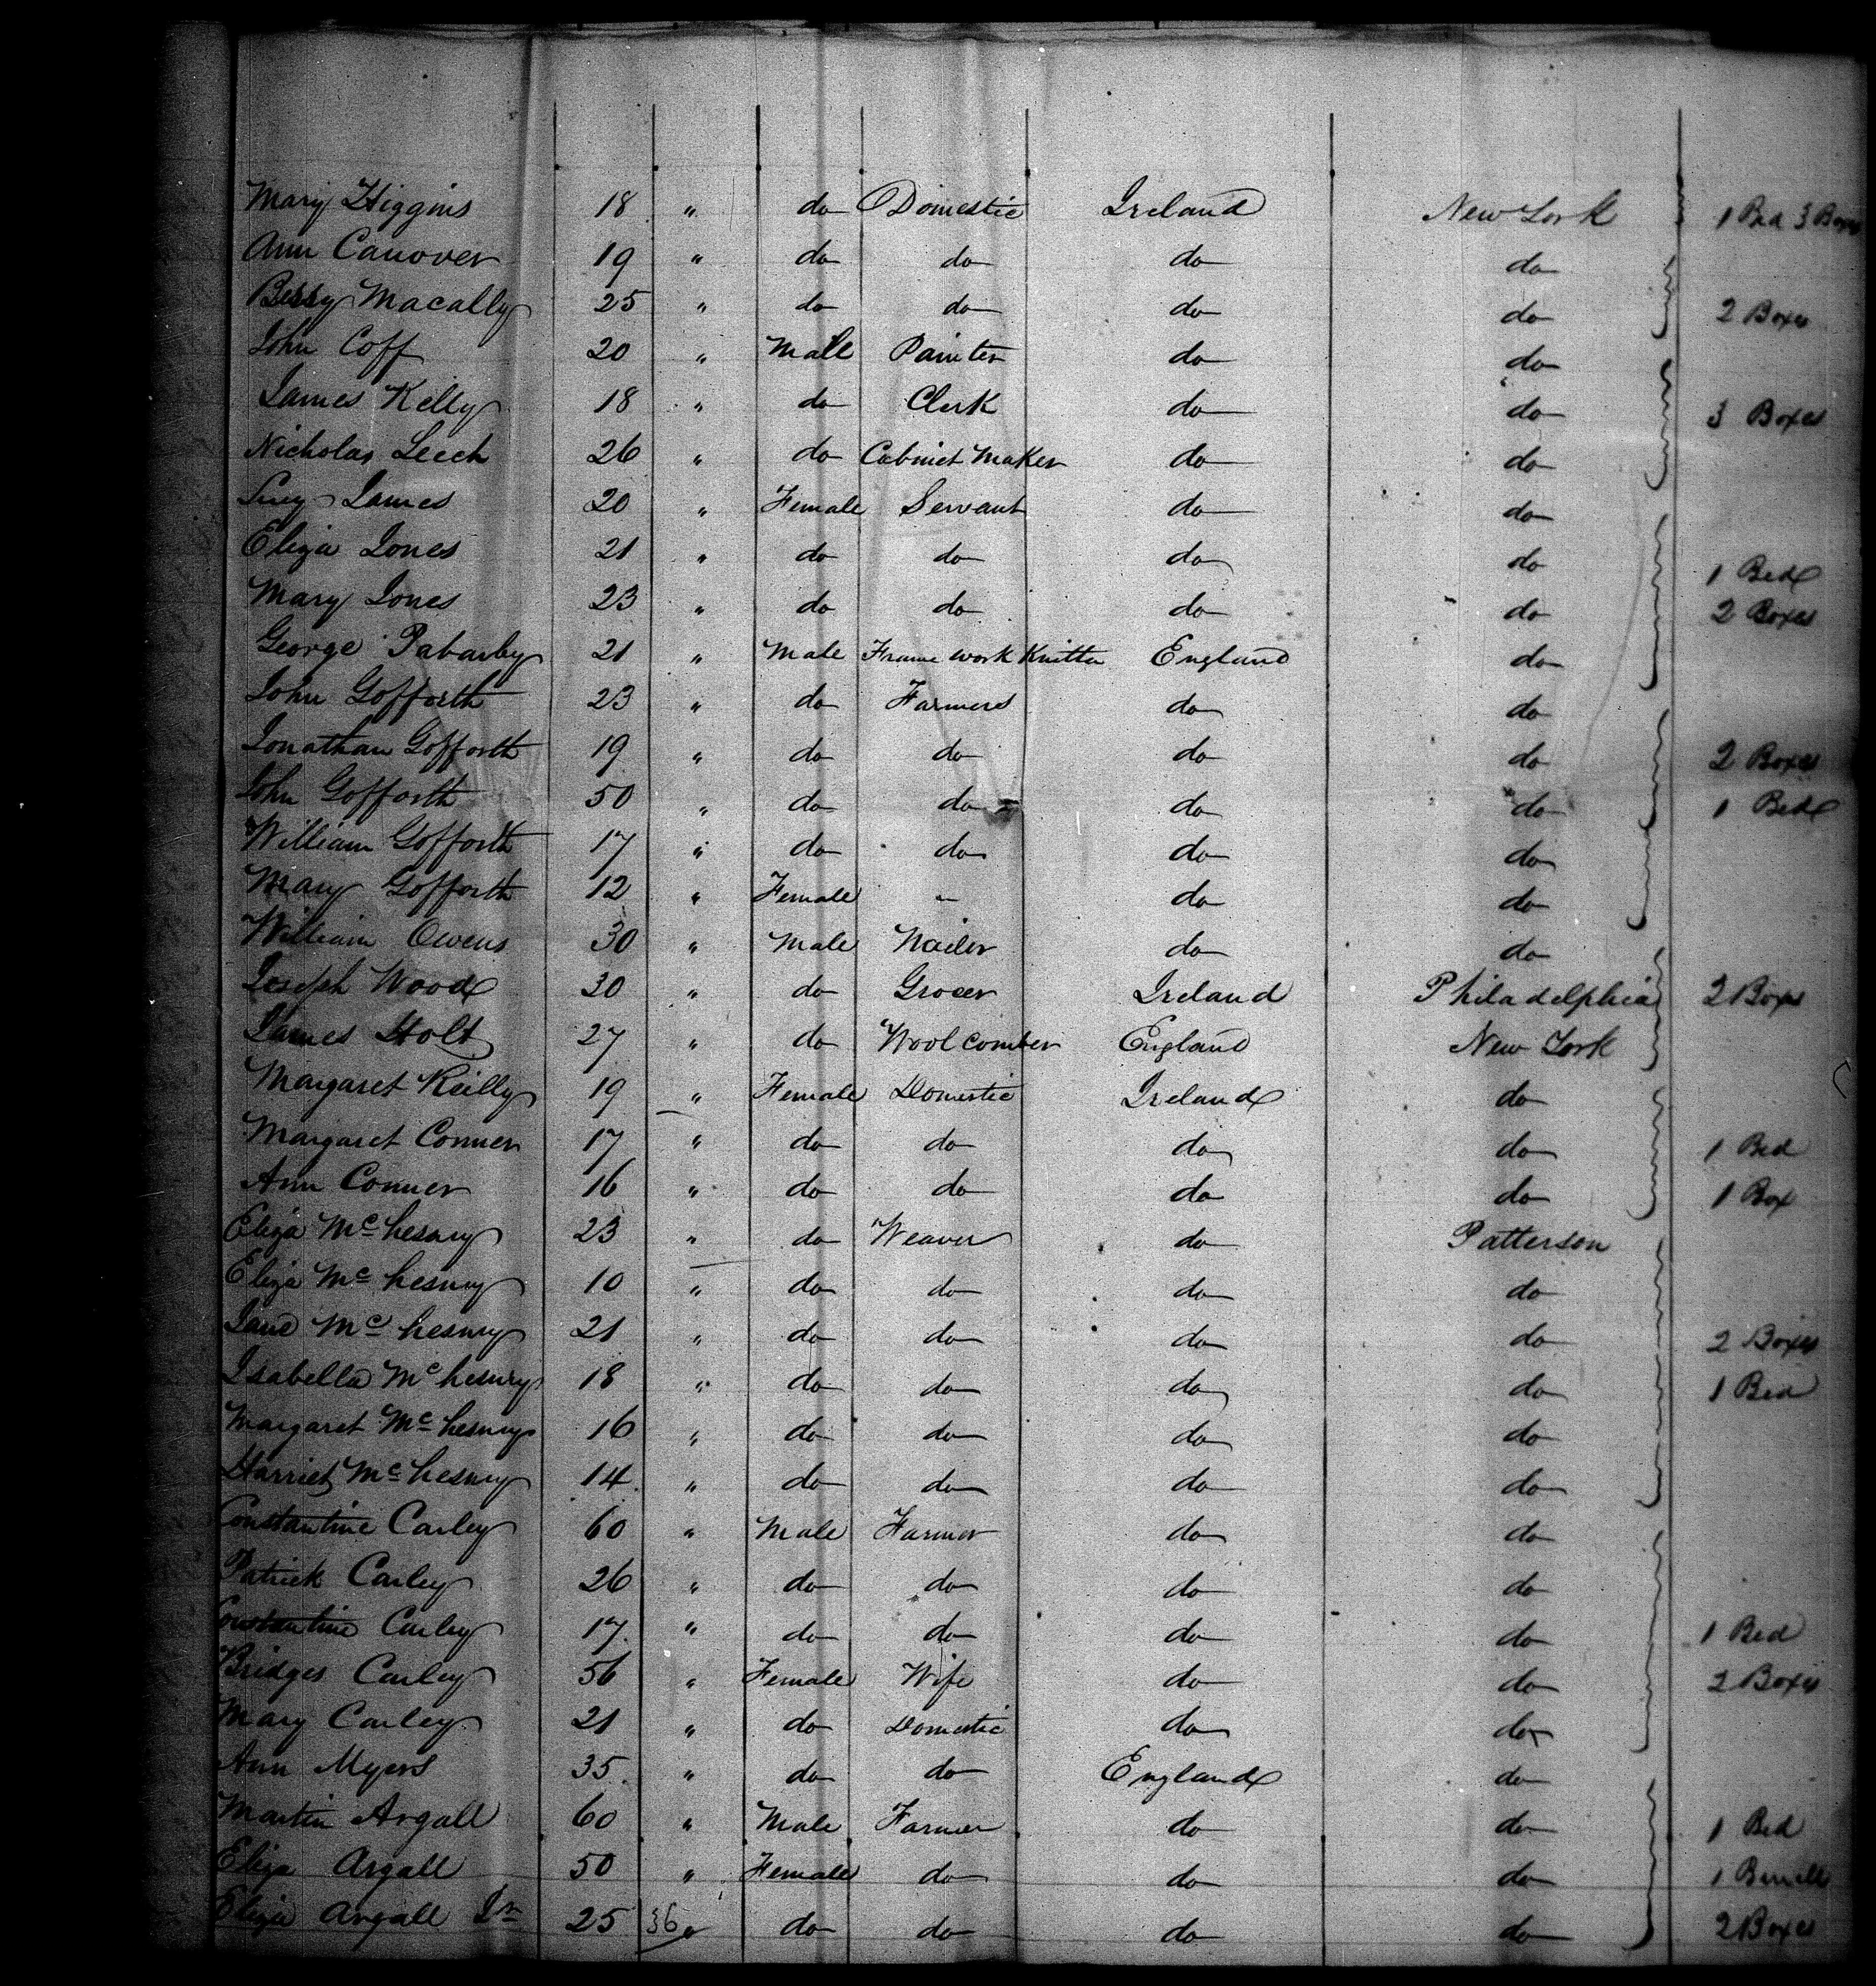 Mary Higgins 18 " do Domestic Ireland New York 1 Bed 3 Boxes
Ann Canover 19 " do do do do
Betsy Macally 25 " do do do do 2 Boxes
John Coff 20 " Male Painter do do
James Kelly 18 " do Clerk do do 3 Boxes
Nicholas Leech 26 " do Cabinet Maker do do
Lucy James 20 " Female Servant do do
Eliza Jones 21 " do do do do 1 Bed
Mary Jones 23 " do do do do 2 Boxes
George Pabarby 21 " Male Frame work Knitter England do
John Gofforth 23 " do Farmers do do
Jonathan Gofforth 19 " do do do do 2 Boxes
John Gofforth 50 " do do do do 1 Bed
William Gofforth 17 " do do do do
Mary Gofforth 12 " Female - do do
William Owens 30 " Male Nailer do do
Joseph Wood 30 " do Grocer Ireland Philadelphia 2 Boxes
James Holt 27 " do Wool comber England New York
Margaret Reilly 19 " Female Domestic Ireland do
Margaret Conner 17 " do do do do 1 Bed
Ann Conner 16 " do do do do 1 Box
Eliza Mc hesney 23 " do Weaver do Patterson
Eliza Mc hesney 10 " do do do do
Jane Mc hesney 21 " do do do do 2 Boxes
Isabella Mc hesney 18 " do do do do 1 Bed
Margaret Mc hesney 16 " do do do do
Harriet Mc hesney 14 " do do do do
Constantine Carley 60 " Male Farmer do do
Patrick Carley 26 " do do do do
Constantine Carley 17 " do do do do 1 Bed
Bridges Carley 56 " Female Wife do do 2 Boxes
Mary Carley 21 " do Domestic do do
Ann Myers 35 " do do England do
Martin Argall 60 " Male Farmer do do 1 Bed
Eliza Argall 50 " Female do do do 1
Eliza Argall Jr 25 36 " do do do do 2 Boxes